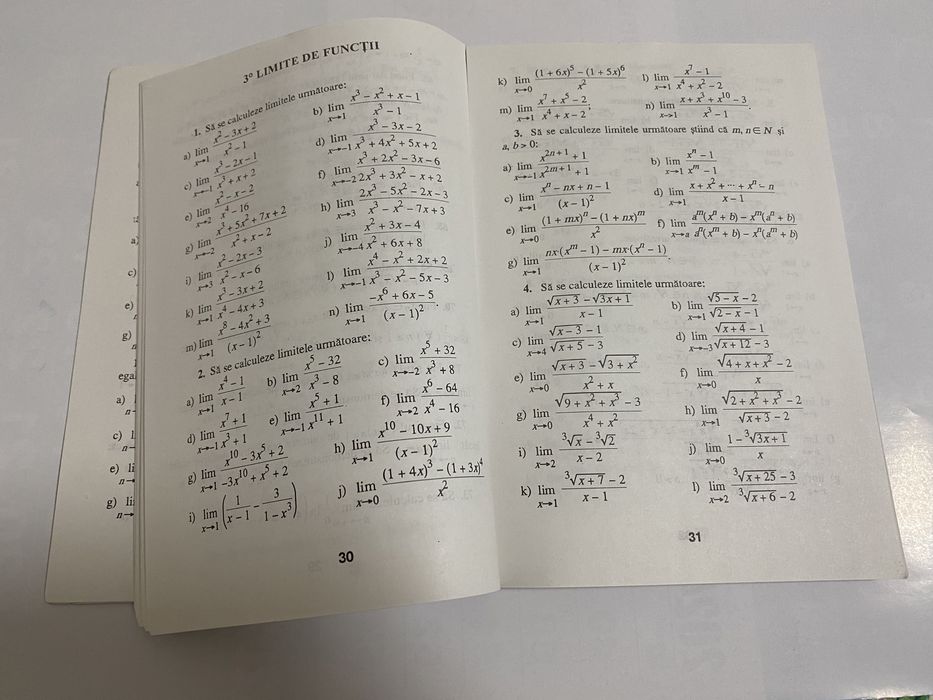 3° LIMITE DE FUNCȚII
1. Să se calculeze limitele următoare:
a) lim x→1 (x² − 3x + 2)/(x² − 1) b) lim x→1 (x³ − x² + x − 1)/(x³ − 1)
c) lim x→−1 (x³ − 2x − 1)/(x³ + x + 2) d) lim x→−1 (x³ − 3x − 2)/(x³ + 4x² + 5x + 2)
e) lim x→2 (x² − x − 2)/(x⁴ − 16) f) lim x→−2 (x³ + 2x² − 3x − 6)/(2x³ + 3x² − x + 2)
g) lim x→−2 (x³ + 5x² + 7x + 2)/(x² + x − 2) h) lim x→3 (2x³ − 5x² − 2x − 3)/(x³ − x² − 7x + 3)
i) lim x→3 (x² − 2x − 3)/(x² − x − 6) j) lim x→−4 (x² + 3x − 4)/(x² + 6x + 8)
k) lim x→1 (x³ − 3x + 2)/(x⁴ − 4x + 3) l) lim x→−1 (x⁴ − x² + 2x + 2)/(x³ − x² − 5x − 3)
m) lim x→1 (x⁸ − 4x² + 3)/(x − 1)² n) lim x→1 (−x⁶ + 6x − 5)/(x − 1)².
2. Să se calculeze limitele următoare:
a) lim x→1 (x⁴ − 1)/(x − 1) b) lim x→2 (x⁵ − 32)/(x³ − 8) c) lim x→−2 (x⁵ + 32)/(x³ + 8)
d) lim x→−1 (x⁷ + 1)/(x³ + 1) e) lim x→−1 (x⁵ + 1)/(x¹¹ + 1) f) lim x→2 (x⁶ − 64)/(x⁴ − 16)
g) lim x→1 (x¹⁰ − 3x⁵ + 2)/(−3x¹⁰ + x⁵ + 2) h) lim x→1 (x¹⁰ − 10x + 9)/(x − 1)²
i) lim x→1 (1/(x − 1) − 3/(1 − x³)) j) lim x→0 ((1 + 4x)³ − (1 + 3x)⁴)/x²
30
k) lim x→0 ((1 + 6x)⁵ − (1 + 5x)⁶)/x² l) lim x→1 (x⁷ − 1)/(x⁴ + x² − 2)
m) lim x→1 (x⁷ + x⁵ − 2)/(x⁴ + x − 2); n) lim x→1 (x + x³ + x¹⁰ − 3)/(x³ − 1).
3. Să se calculeze limitele următoare știind că m, n ∈ N și
a, b > 0:
a) lim x→−1 (x²ⁿ⁺¹ + 1)/(x²ᵐ⁺¹ + 1) b) lim x→1 (xⁿ − 1)/(xᵐ − 1)
c) lim x→1 (xⁿ − nx + n − 1)/(x − 1)² d) lim x→1 (x + x² + ··· + xⁿ − n)/(x − 1)
e) lim x→0 ((1 + mx)ⁿ − (1 + nx)ᵐ)/x² f) lim x→a (aᵐ(xⁿ + b) − xᵐ(aⁿ + b))/(aⁿ(xᵐ + b) − xⁿ(aᵐ + b))
g) lim x→1 (nx·(xᵐ − 1) − mx·(xⁿ − 1))/(x − 1)².
4. Să se calculeze limitele următoare:
a) lim x→1 (√(x + 3) − √(3x + 1))/(x − 1) b) lim x→1 (√(5 − x) − 2)/(√(2 − x) − 1)
c) lim x→4 (√(x − 3) − 1)/(√(x + 5) − 3) d) lim x→−3 (√(x + 4) − 1)/(√(x + 12) − 3)
e) lim x→0 (√(x + 3) − √(3 + x²))/(x² + x) f) lim x→0 (√(4 + x + x²) − 2)/x
g) lim x→0 (√(9 + x² + x³) − 3)/(x⁴ + x²) h) lim x→1 (√(2 + x² + x³) − 2)/(√(x + 3) − 2)
i) lim x→2 (³√x − ³√2)/(x − 2) j) lim x→0 (1 − ³√(3x + 1))/x
k) lim x→1 (³√(x + 7) − 2)/(x − 1) l) lim x→2 (³√(x + 25) − 3)/(³√(x + 6) − 2)
31